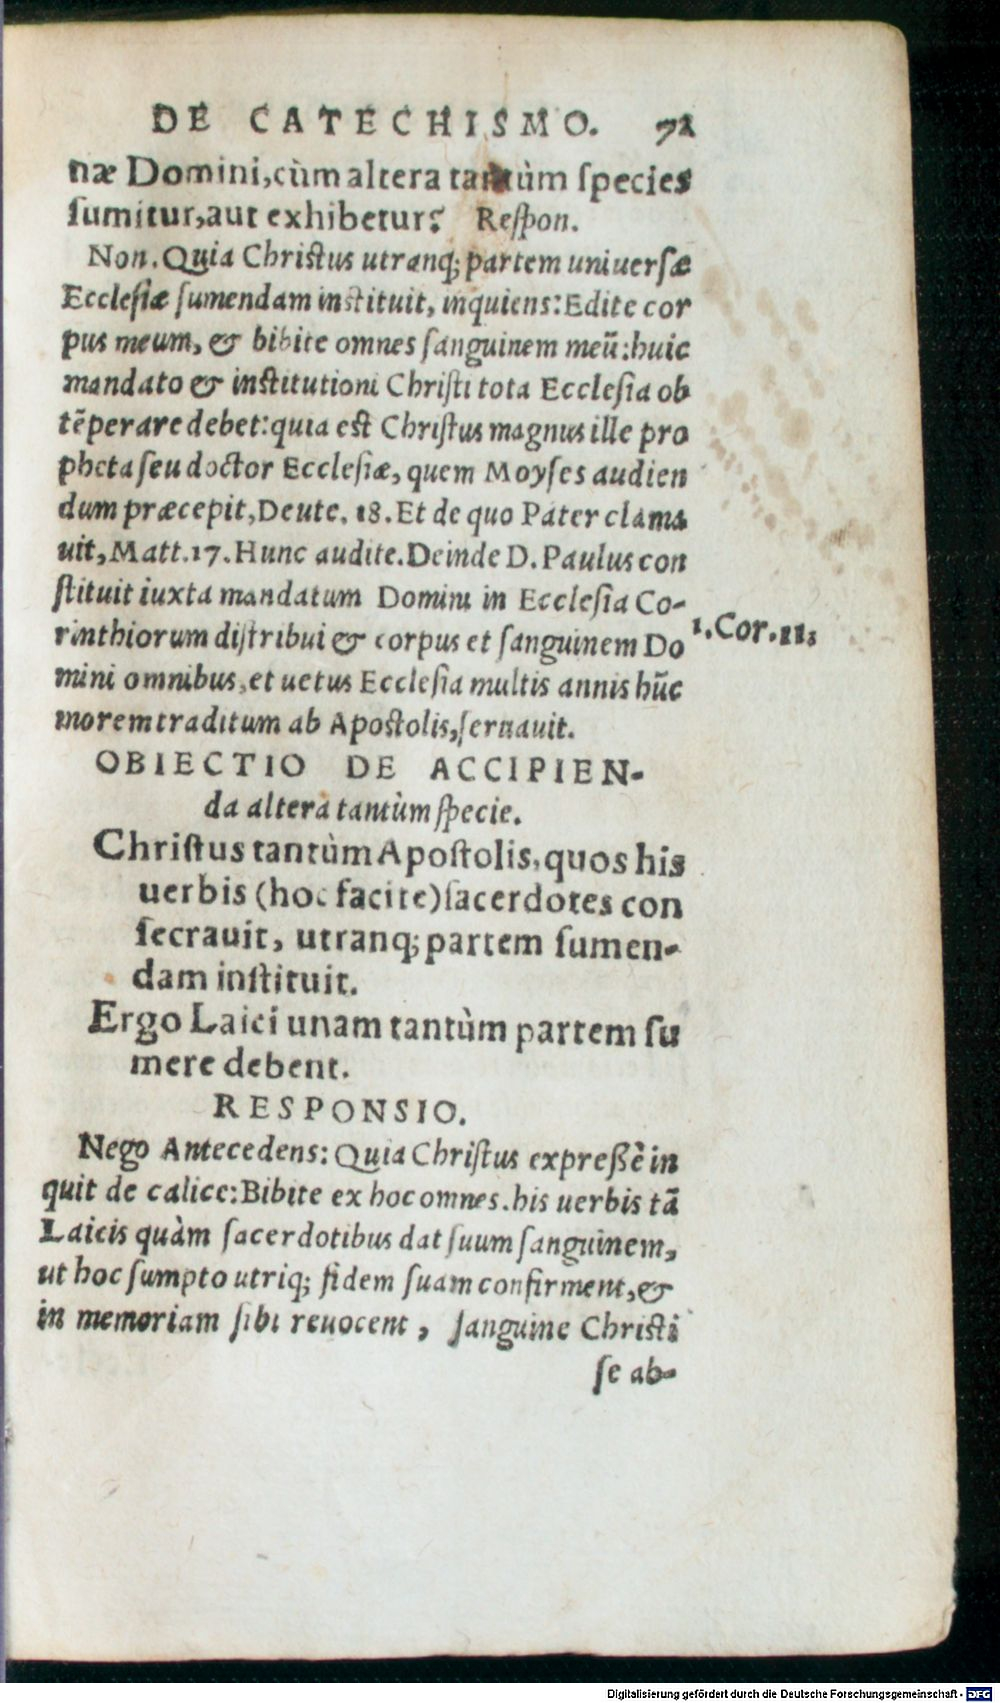 DE CATECHISMO. 72
næ Domini, cùm altera tantùm ſpecies
ſumitur, aut exhibetur? Reſpon.
Non. Quia Chriſtus utranq; partem uniuerſæ
Eccleſiæ ſumendam inſtituit, inquiens: Edite cor
pus meum, & bibite omnes ſanguinem meū: huic
mandato & inſtitutioni Chriſti tota Eccleſia ob
tēperare debet: quia eſt Chriſtus magnus ille pro
pheta ſeu doctor Eccleſiæ, quem Moyſes audien
dum præcepit, Deute. 18. Et de quo Pater clama
uit, Matt. 17. Hunc audite. Deinde D. Paulus con
ſtituit iuxta mandatum Domini in Eccleſia Co-
rinthiorum diſtribui & corpus et ſanguinem Do
1. Cor. 11.
mini omnibus, et uetus Eccleſia multis annis hūc
morem traditum ab Apoſtolis, ſeruauit.
OBIECTIO DE ACCIPIEN-
da altera tantùm ſpecie.
Chriſtus tantùm Apoſtolis, quos his
uerbis (hoc facite) ſacerdotes con
ſecrauit, utranq; partem ſumen-
dam inſtituit.
Ergo Laici unam tantùm partem ſu
mere debent.
RESPONSIO.
Nego Antecedens: Quia Chriſtus expreßè in
quit de calice: Bibite ex hoc omnes. his uerbis tā
Laicis quàm ſacerdotibus dat ſuum ſanguinem,
ut hoc ſumpto utriq; fidem ſuam confirment, &
in memoriam ſibi reuocent, ſanguine Chriſti
ſe ab-
Digitalisierung gefördert durch die Deutsche Forschungsgemeinschaft - DFG